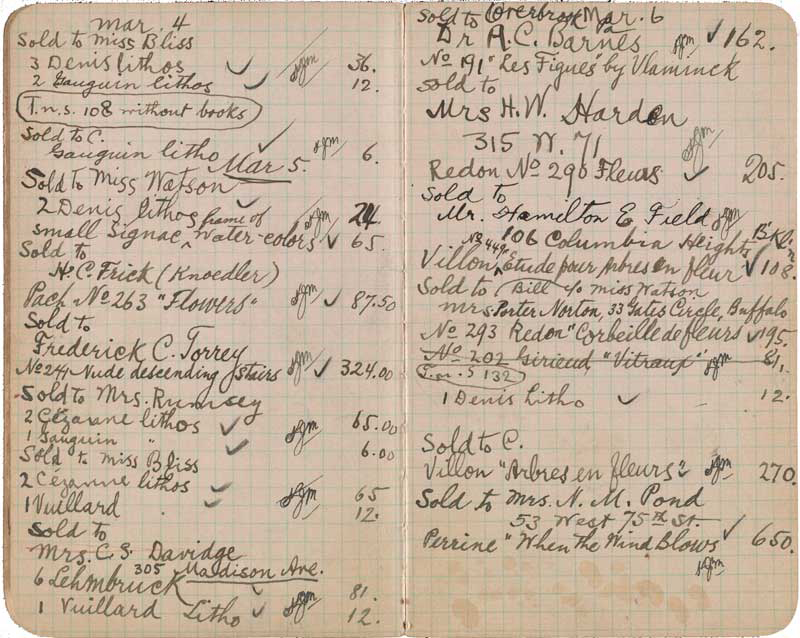 Mar. 4
Sold to Miss Bliss
3 Denis lithos 36.
2 Gauguin lithos 12.
T.n.s. 108 without books
Sold to C.
Gauguin litho 6.
Mar 5.
Sold to Miss Watson
2 Denis lithos 24
frame of
small Signac water-colors 65.
Sold to
H. C. Frick (Knoedler)
Pach No 263 "Flowers" 87.50
Sold to
Frederick C. Torrey
No 241 Nude descending Stairs 324.00
Sold to Mrs. Rumsey
2 Cézanne lithos 65.00
1 Gauguin " 6.00
Sold to Miss Bliss
2 Cézanne lithos 65
1 Vuillard 12.
Sold to
Mrs. C. S. Davidge
305 Maidison Ave.
6 Lehmbruck 81.
1 Vuillard Litho 12.
Mar. 6
Sold to Overbrook Pa
Dr A.C. Barnes 162.
No 191 "Les Figues" by Vlaminck
Sold to
Mrs H. W. Harden
315 W. 71
Redon No 290 Fleurs 205.
Sold to
Mr. Hamilton E Field
106 Columbia Heights B'klin
Villon, No 449 Etude pour Arbres en fleur 108.
Sold to Bill c/o Miss Watson
Mrs. Porter Norton, 33 Gates Circle, Buffalo
No 293 Redon "Corbeille de fleurs 195.
No 202 Girieud, "Vitraux" 81.
T.n.s 132
1 Denis Litho 12.
Sold to C.
Villon "Arbres en fleurs" 270.
Sold to Mrs. N. M. Pond
53 West 75th St.
Perrine "When the Wind Blows 650.